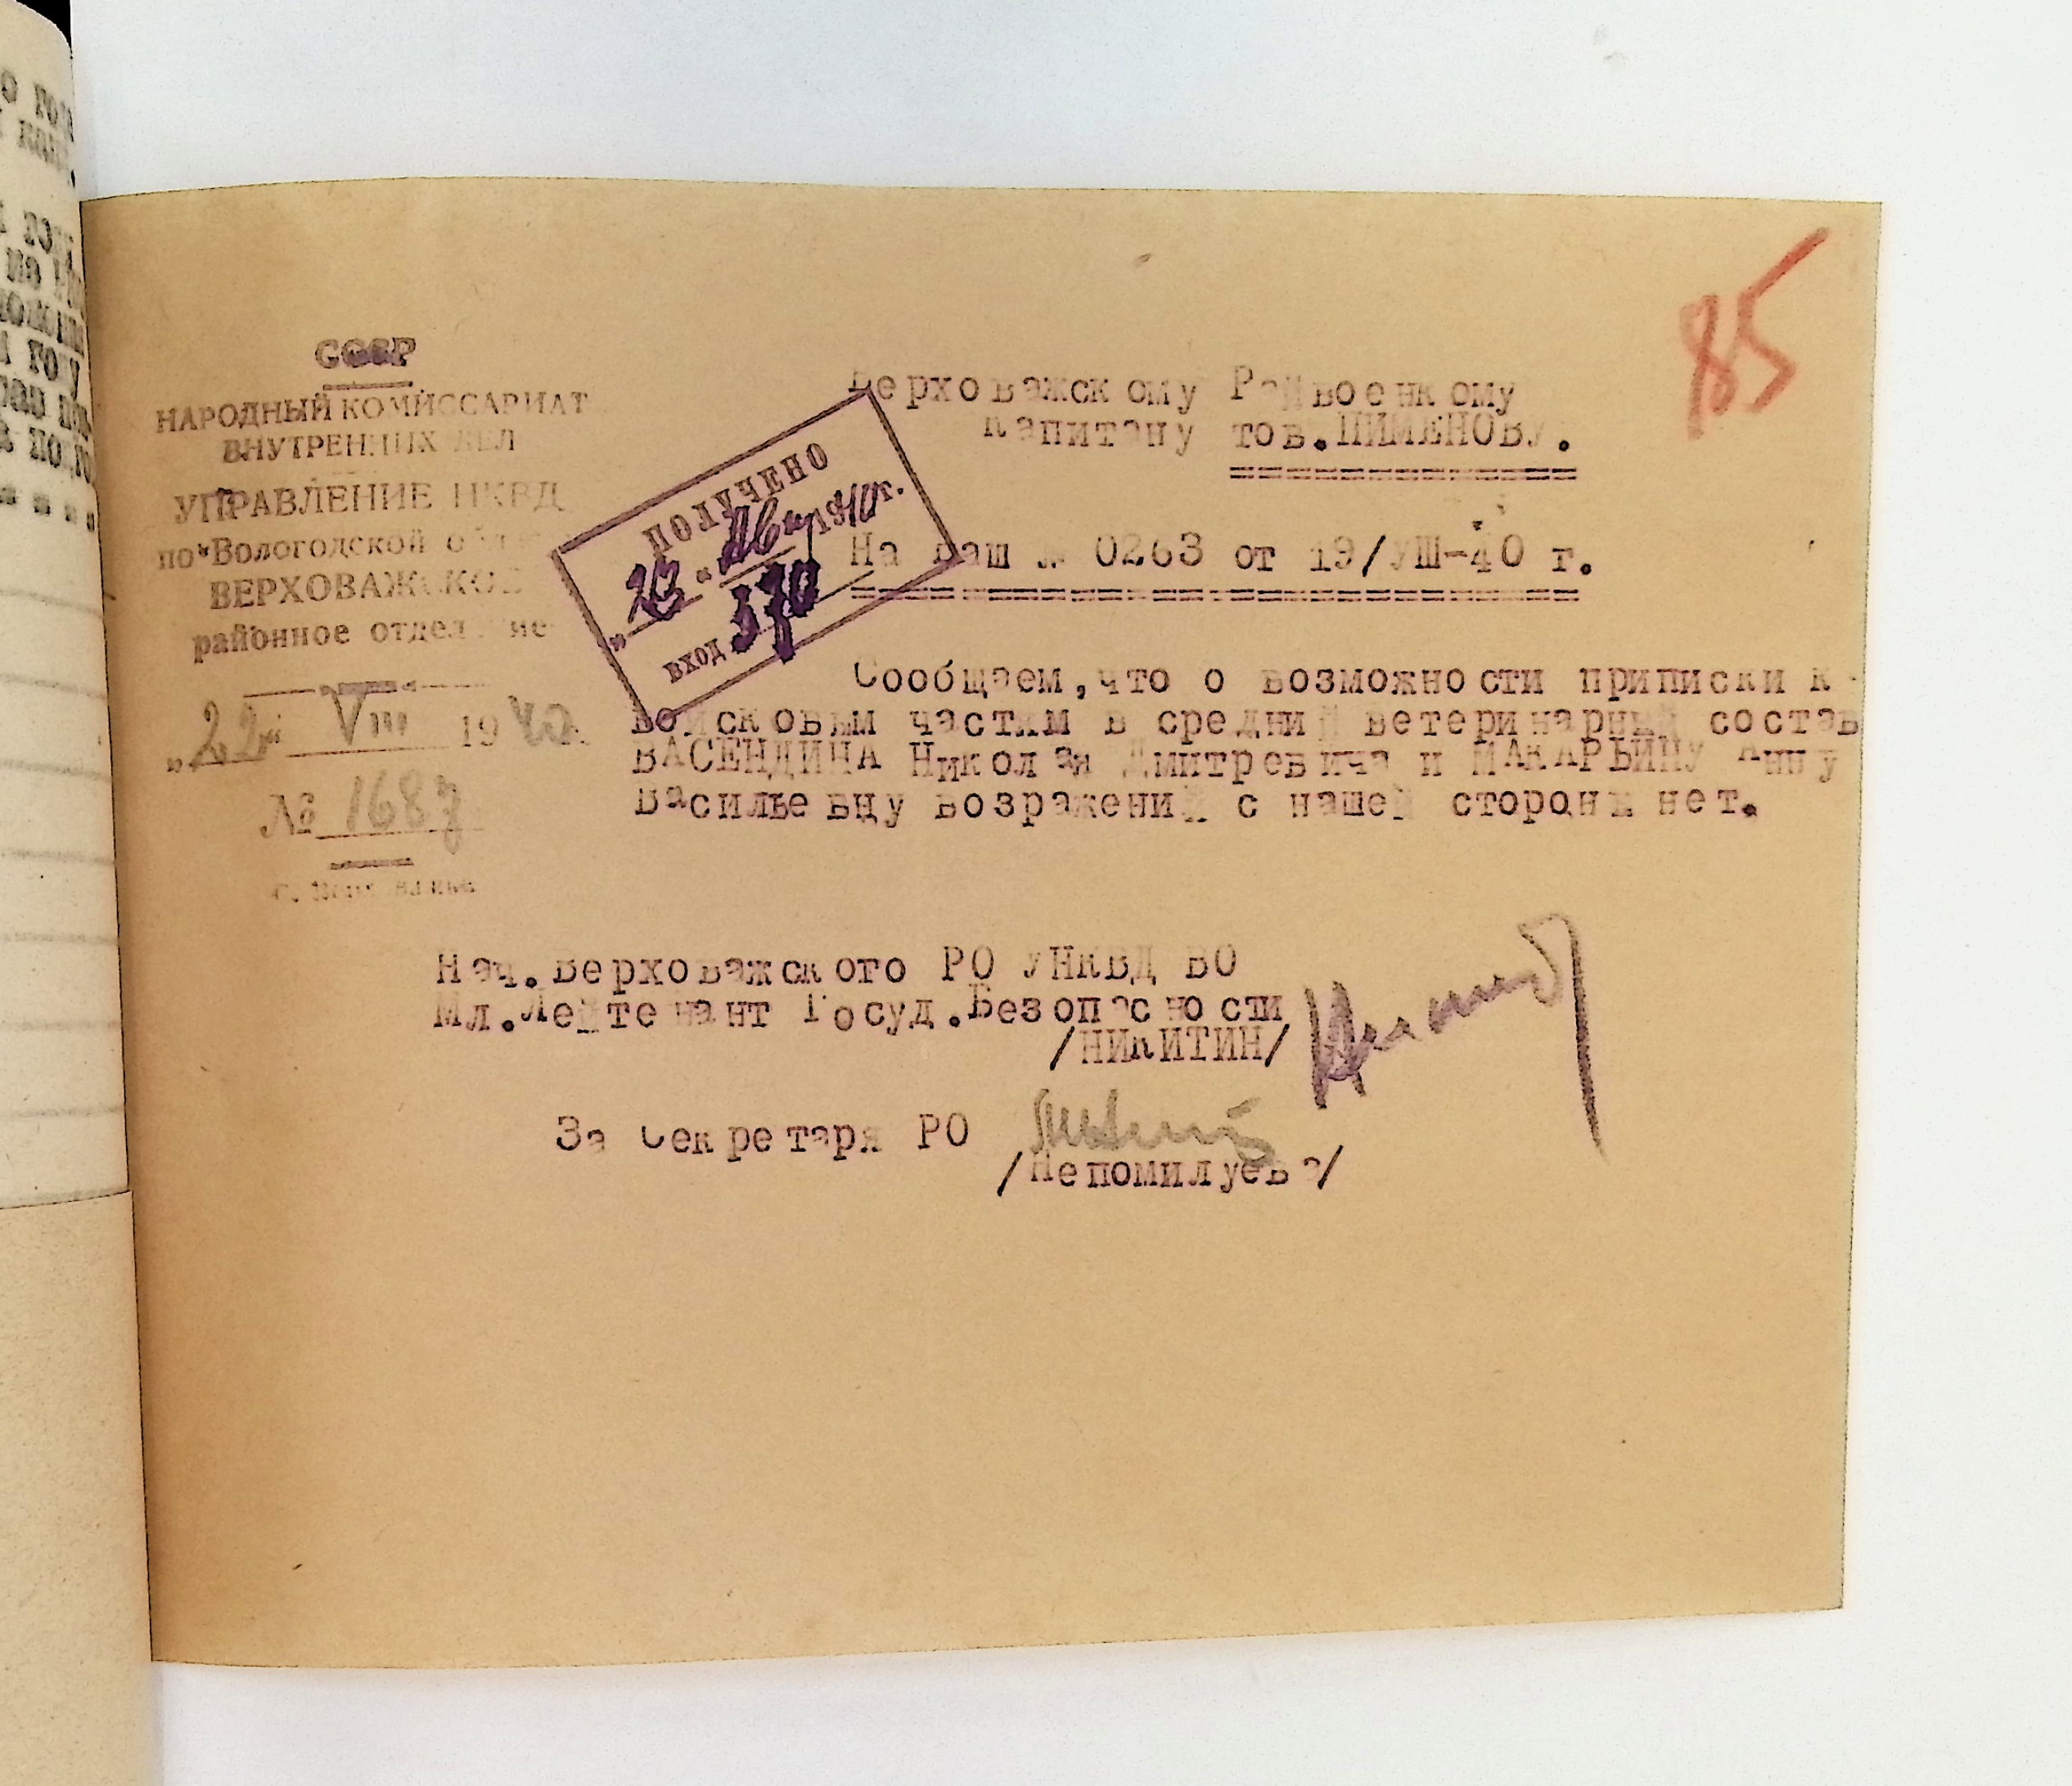 85
СССР
НАРОДНЫЙ КОМИССАРИАТ
ВНУТРЕННИХ ДЕЛ
УПРАВЛЕНИЕ НКВД
по Вологодской области
ВЕРХОВАЖСКОЕ
районное отделение
"22" VIII 1940г.
№ 1687
с. Верховажье
ПОЛУЧЕНО
"23" Авг 1940г.
вход 370
Верховажскому Райвоенкому
капитану тов.ПИМЕНОВУ.
На Ваш № 0263 от 19/УШ-40 г.
Сообщаем,что о возможности приписки к
войсковым частям в средний ветеринарный состав
ВАСЕНДИНА Николая Дмитревича и МАКАРЬИНУ Анну
Васильевну возражений с нашей стороны нет.
Нач.Верховажского РО УНКВД ВО
Мл.Лейтенант Госуд.Безопасности
/НИКИТИН/
За Секретаря РО
/Непомилуева/